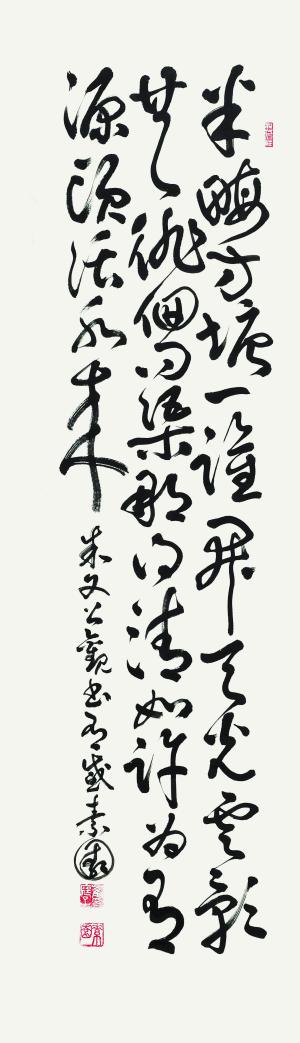 半畮方塘一鑑開天光雲影
共徘徊問渠那得清如許為有
源頭活水來 朱文公觀書有感 素園